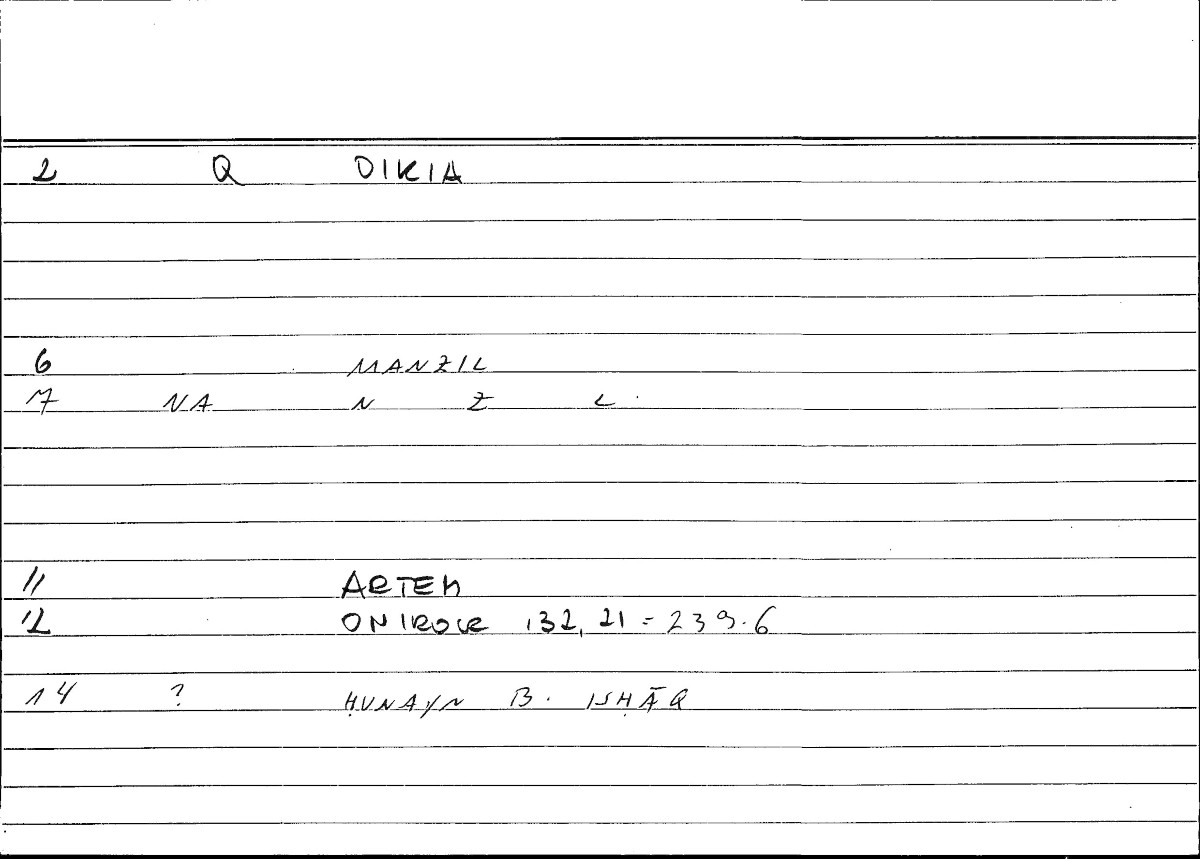 2 Q OIKIA
6 MANZIL
7 NA N Z L
11 ARTEM
12 ONIROCR 132, 21 = 239.6
14 ? ḤUNAYN B. ISḤĀQ